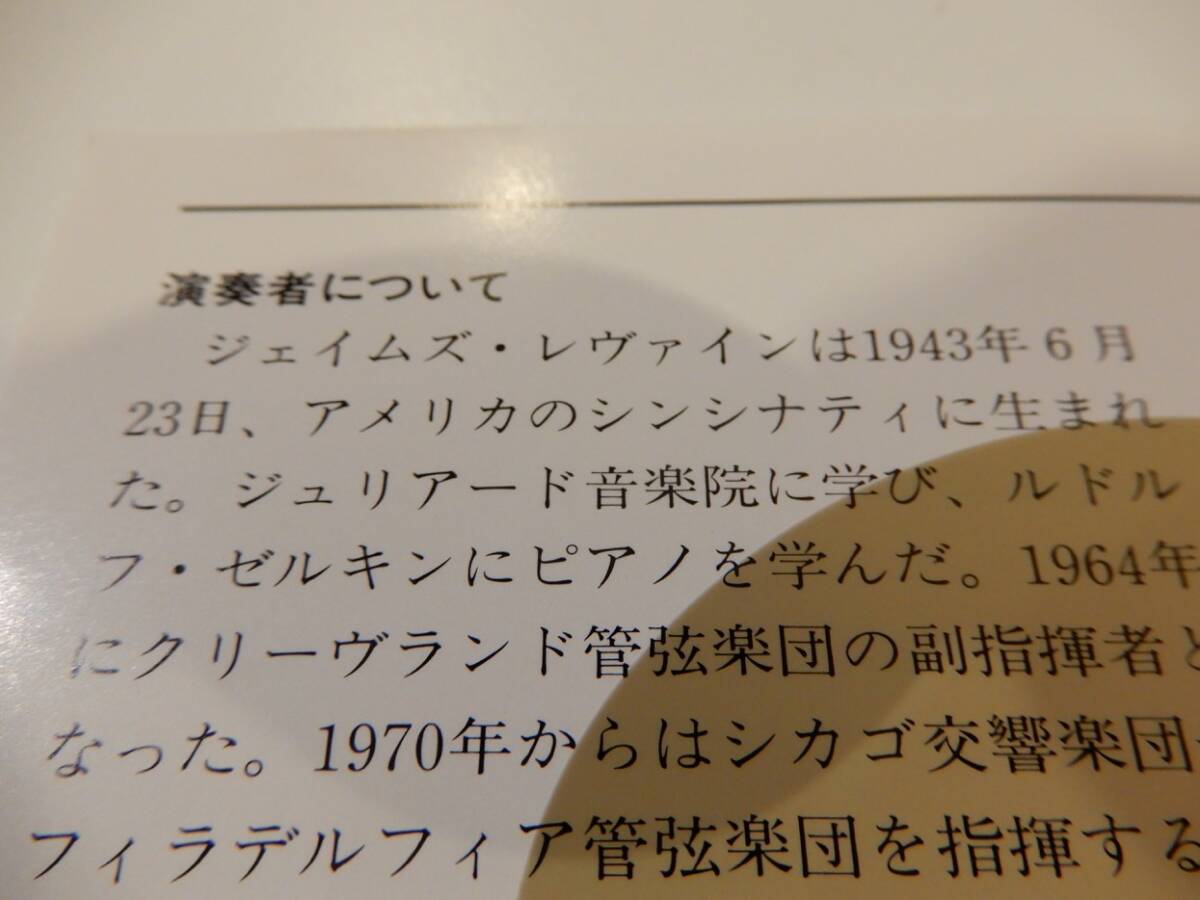 演奏者について
ジェイムズ・レヴァインは1943年6月
23日、アメリカのシンシナティに生まれ
た。ジュリアード音楽院に学び、ルドル
フ・ゼルキンにピアノを学んだ。1964年
にクリーヴランド管弦楽団の副指揮者と
なった。1970年からはシカゴ交響楽団
フィラデルフィア管弦楽団を指揮する